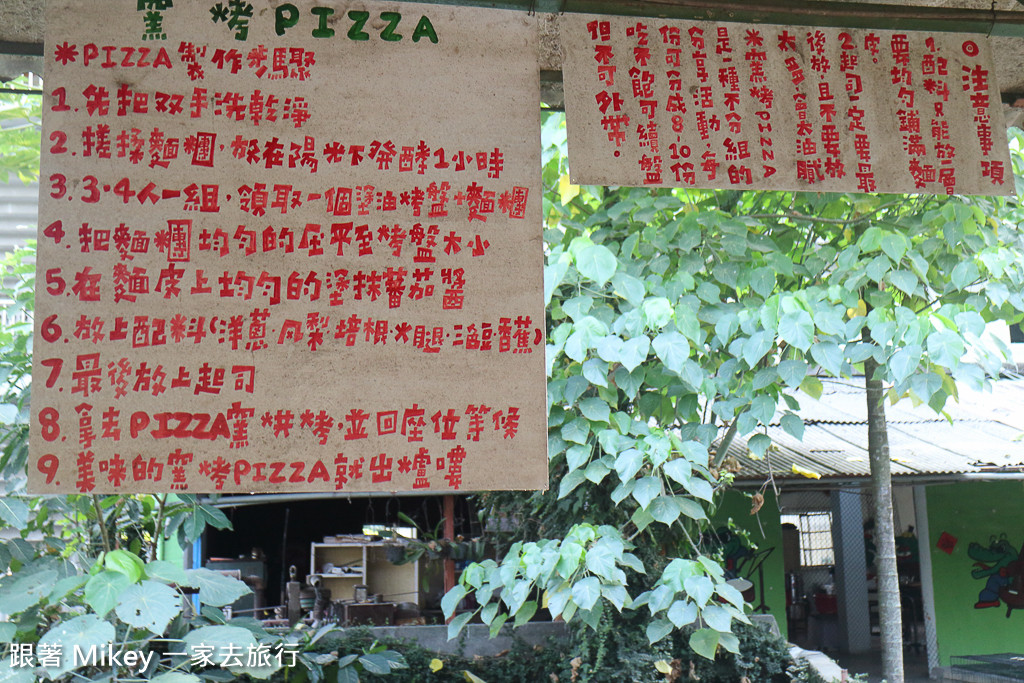 窯烤PIZZA
*PIZZA製作步驟
1.先把双手洗乾淨
2.搓揉麵糰,放在陽光下發酵1小時
3.3-4人一組,領取一個塗油烤盤+麵糰
4.把麵糰均勻的压平至烤盤大小
5.在麵皮上均勻的塗抹蕃茄醬
6.放上配料(洋蔥.鳳梨培根.火腿.三色豆香蕉)
7.最後放上起司
8.拿去PIZZA窯烘烤,並回座位等候
9.美味的窯烤PIZZA就出爐嘍
◎注意事項
1.配料只能放一層
要均勻鋪滿麵
皮。
2.起司一定要最
後放且不要放
太多會太油膩
*窯烤PIZZA
是一種不分組的
分享活動,每
份可分成8,10份
吃不飽可續盤
但不可外帶。
跟著 Mikey 一家去旅行